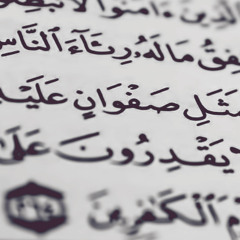 الَّذِينَ ءَامَنُوا۟ لَا
يُنفِقُ مَالَهُۥ رِئَآءَ ٱلنَّاسِ
كَمَثَلِ صَفْوَانٍ عَلَيْهِ
يَقْدِرُونَ عَلَىٰ
ٱلْكَٰفِرِينَ